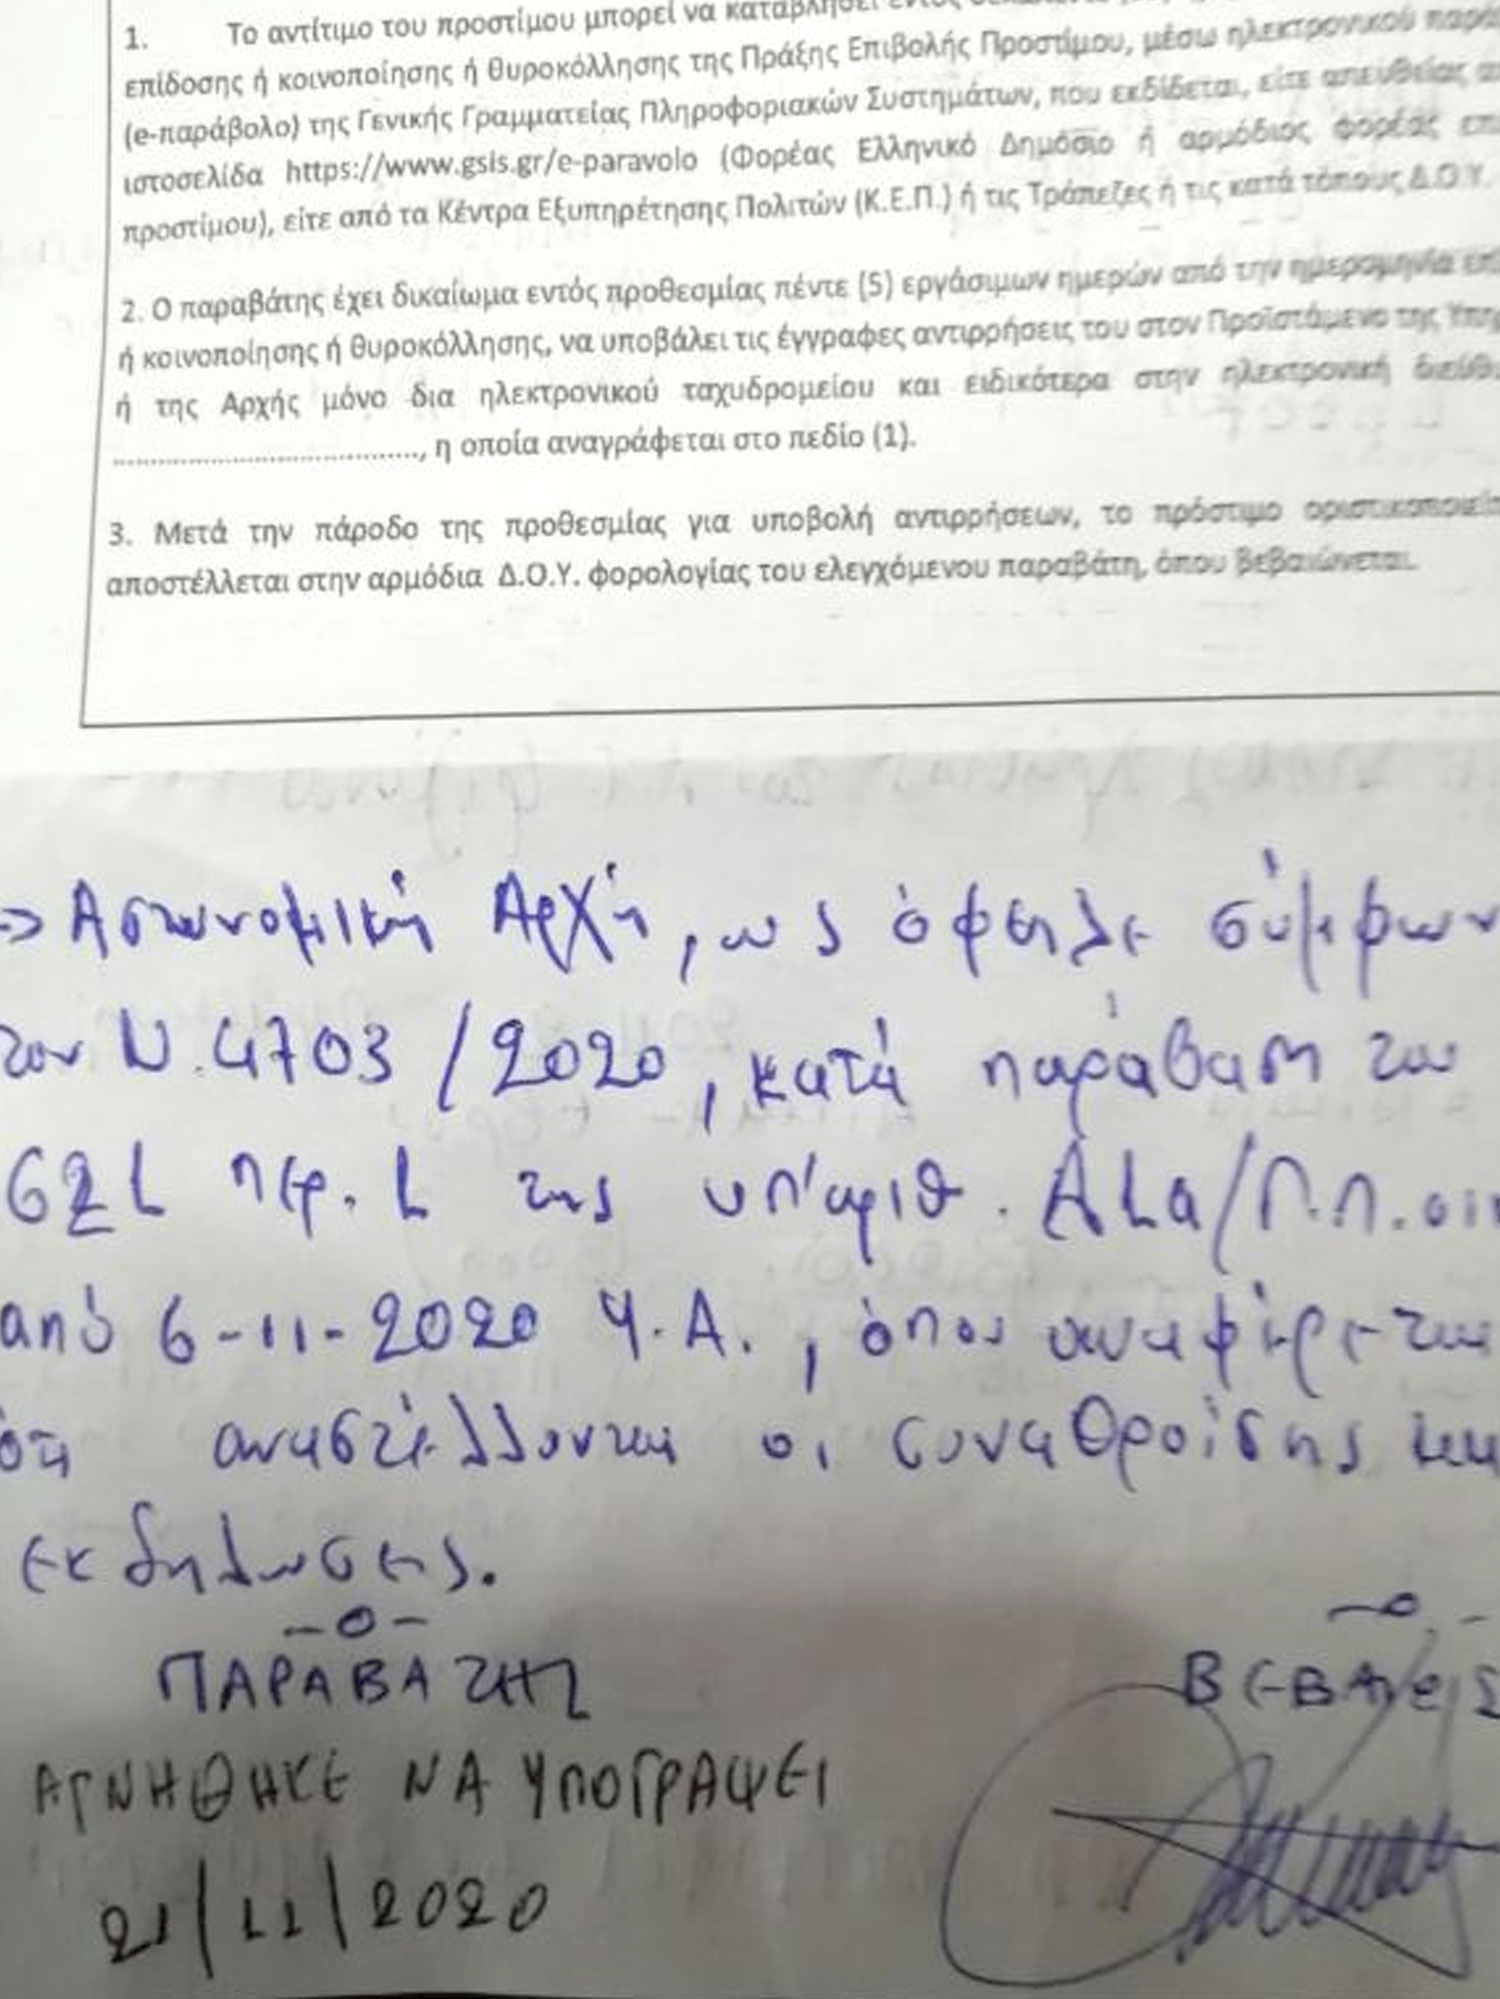 1. Το αντίτιμο του προστίμου μπορεί να καταβληθεί εντός
επίδοσης ή κοινοποίησης ή θυροκόλλησης της Πράξης Επιβολής Προστίμου, μέσω ηλεκτρονικού
(e-παράβολο) της Γενικής Γραμματείας Πληροφοριακών Συστημάτων, που εκδίδεται, είτε απευθείας
ιστοσελίδα https://www.gsis.gr/e-paravolo (Φορέας Ελληνικό Δημόσιο ή αρμόδιος φορέας
προστίμου), είτε από τα Κέντρα Εξυπηρέτησης Πολιτών (Κ.Ε.Π.) ή τις Τράπεζες ή τις κατά τόπους Δ.Ο.Υ.
2. Ο παραβάτης έχει δικαίωμα εντός προθεσμίας πέντε (5) εργάσιμων ημερών από την ημερομηνία
ή κοινοποίησης ή θυροκόλλησης, να υποβάλει τις έγγραφες αντιρρήσεις του στον Προϊστάμενο της
ή της Αρχής μόνο δια ηλεκτρονικού ταχυδρομείου και ειδικότερα στην ηλεκτρονική
........................................, η οποία αναγράφεται στο πεδίο (1).
3. Μετά την πάροδο της προθεσμίας για υποβολή αντιρρήσεων, το πρόστιμο
αποστέλλεται στην αρμόδια Δ.Ο.Υ. φορολογίας του ελεγχόμενου παραβάτη, όπου βεβαιώνεται.
-> Αστυνομική Αρχή, ως όφειλε σύμφων
τον Ν.4703/2020, κατά παράβαση του
περ. 1 της υπ'αριθ. Δ1α/Γ.Π.οικ
από 6-11-2020 Υ.Α., όπου αναφέρεται
ότι αναστέλλονται οι συναθροίσης και
εκδηλώσεις.
-ο-
ΠΑΡΑΒΑΤΗΣ
ΑΡΝΗΘΗΚΕ ΝΑ ΥΠΟΓΡΑΨΕΙ
21/11/2020
-ο-